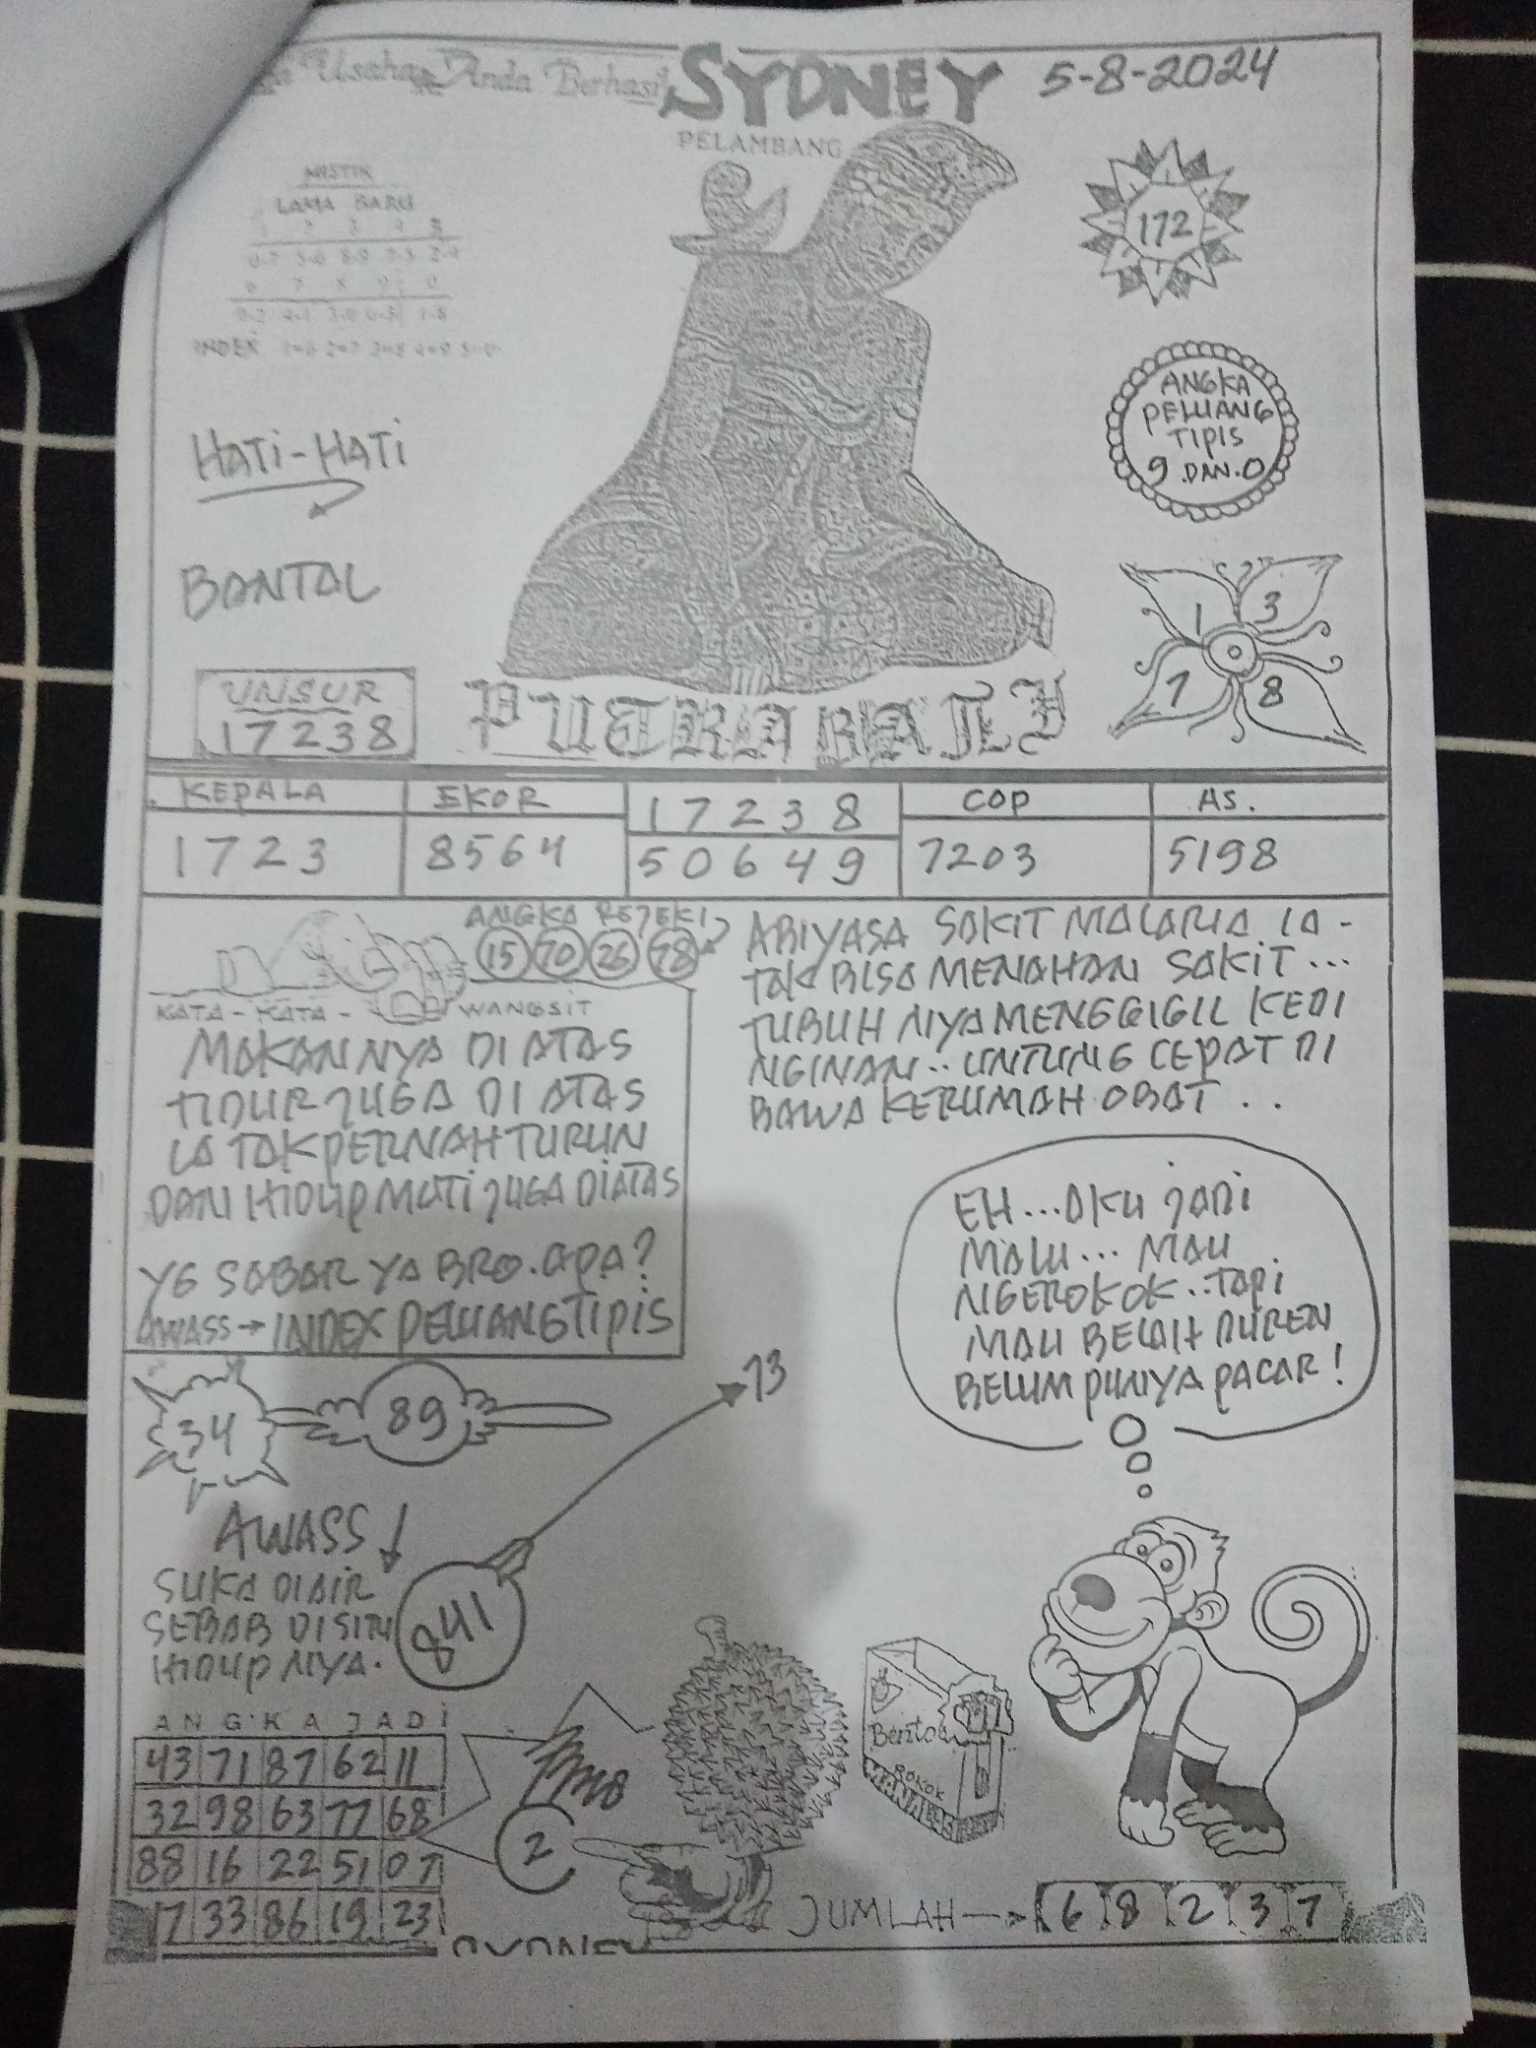 Usaha Anda Berhasil
SYDNEY 5-8-2024
PELAMBANG
MISTIK
LAMA BARU
INDEX
172
ANGKA
PELUANG
TIPIS
9 DAN 0
HATI-HATI
BANTAL
1 3
7 8
UNSUR
17238
PUTRI BALI
KEPALA EKOR 17238 COP AS.
1723 8564 50649 7203 5198
ANGKA REJEKI
15 70 26 78
KATA-KATA-WANGSIT
MAKANNYA DI ATAS
TIDUR JUGA DI ATAS
IA TAK PERNAH TURUN
DAN HIDUP MATI JUGA DIATAS
YG SABAR YA BRO. APA?
AWASS→INDEX PELUANG TIPIS
ARIYASA SAKIT MALARIA IA-
TAK BISA MENAHAN SAKIT...
TUBUH NYA MENGGIGIL KEDI
NGINAN.. UNTUNG CEPAT DI
BAWA KERUMAH OBAT . .
EH...AKU JADI
MALU... MAU
NGEROKOK..TAPI
MAU BELAH DUREN
BELUM PUNYA PACAR!
34 89
73
AWASS
SUKA DIAIR
SEBAB DISITU
HIDUP NYA.
841
ANGKA JADI
43 71 87 62 11
32 98 63 77 68
88 16 22 51 07
17 33 86 19 23
2
Bentoel
ROKOK
JUMLAH→ 6 8 2 3 7
SYDNEY